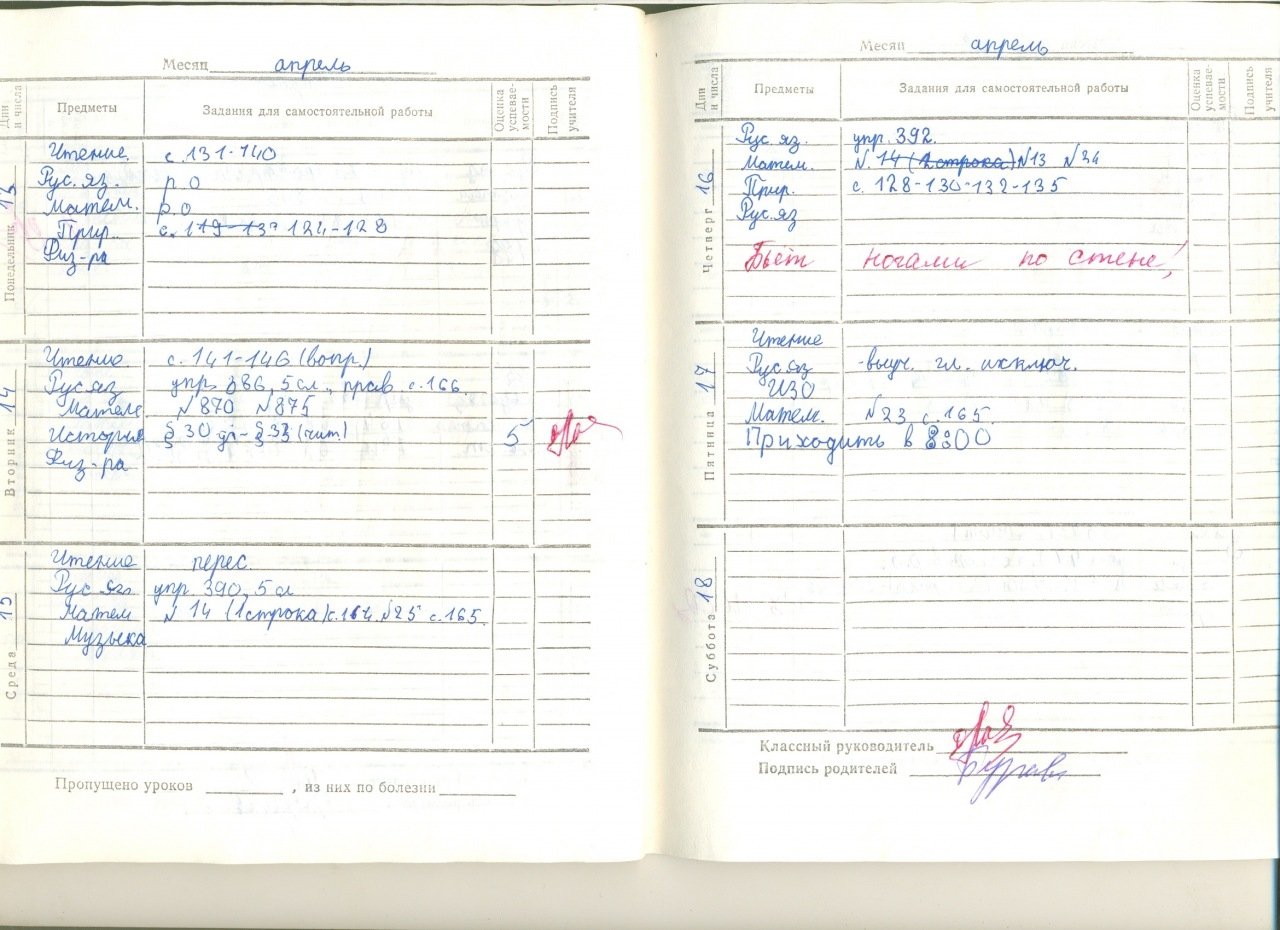 Месяц апрель
Дни и числа Предметы Задания для самостоятельной работы Оценка успевае-мости Подпись учителя
Понедельник 13
Чтение с. 131-140
Рус. яз. р.о
Матем. р.о
Прир. с. 119-13? 124-128
Физ-ра
Вторник 14
Чтение с. 141-146 (вопр.)
Рус яз упр. 386, 5 сл., прав. с. 166
Матем №870 №875
История § 30 до - § 33 (чит) 5
Физ-ра
Среда 15
Чтение перес.
Рус яз. упр. 390, 5 сл
Матем № 14 (1 строка) с. 164. №25 с. 165.
Музыка
Пропущено уроков , из них по болезни
Месяц апрель
Дни и числа Предметы Задания для самостоятельной работы Оценка успевае-мости Подпись учителя
Четверг 16
Рус. яз. упр. 392.
Матем. №. 14 (2 строка) №13 №24
Прир. с. 128-130-132-135
Рус. яз
Бьёт ногами по стене!
Пятница 17
Чтение
Рус. яз -выуч. гл. исключ.
ИЗО
Матем. №23 с. 165
Приходить в 8:00
Суббота 18
Классный руководитель
Подпись родителей